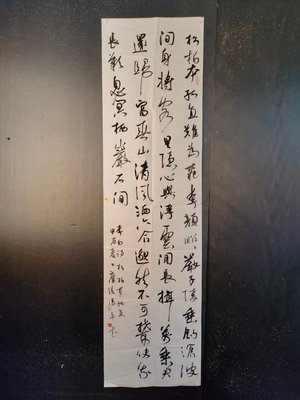 松柏本孤直難為桃李顏昭々嚴子陵垂釣滄波
間身將客星隱心與浮雲閒長揖萬乘君
還歸富春山清風洒六合邈然不可攀使我
長歎息冥栖巖石間
李白詩松柏本孤直
甲辰夏